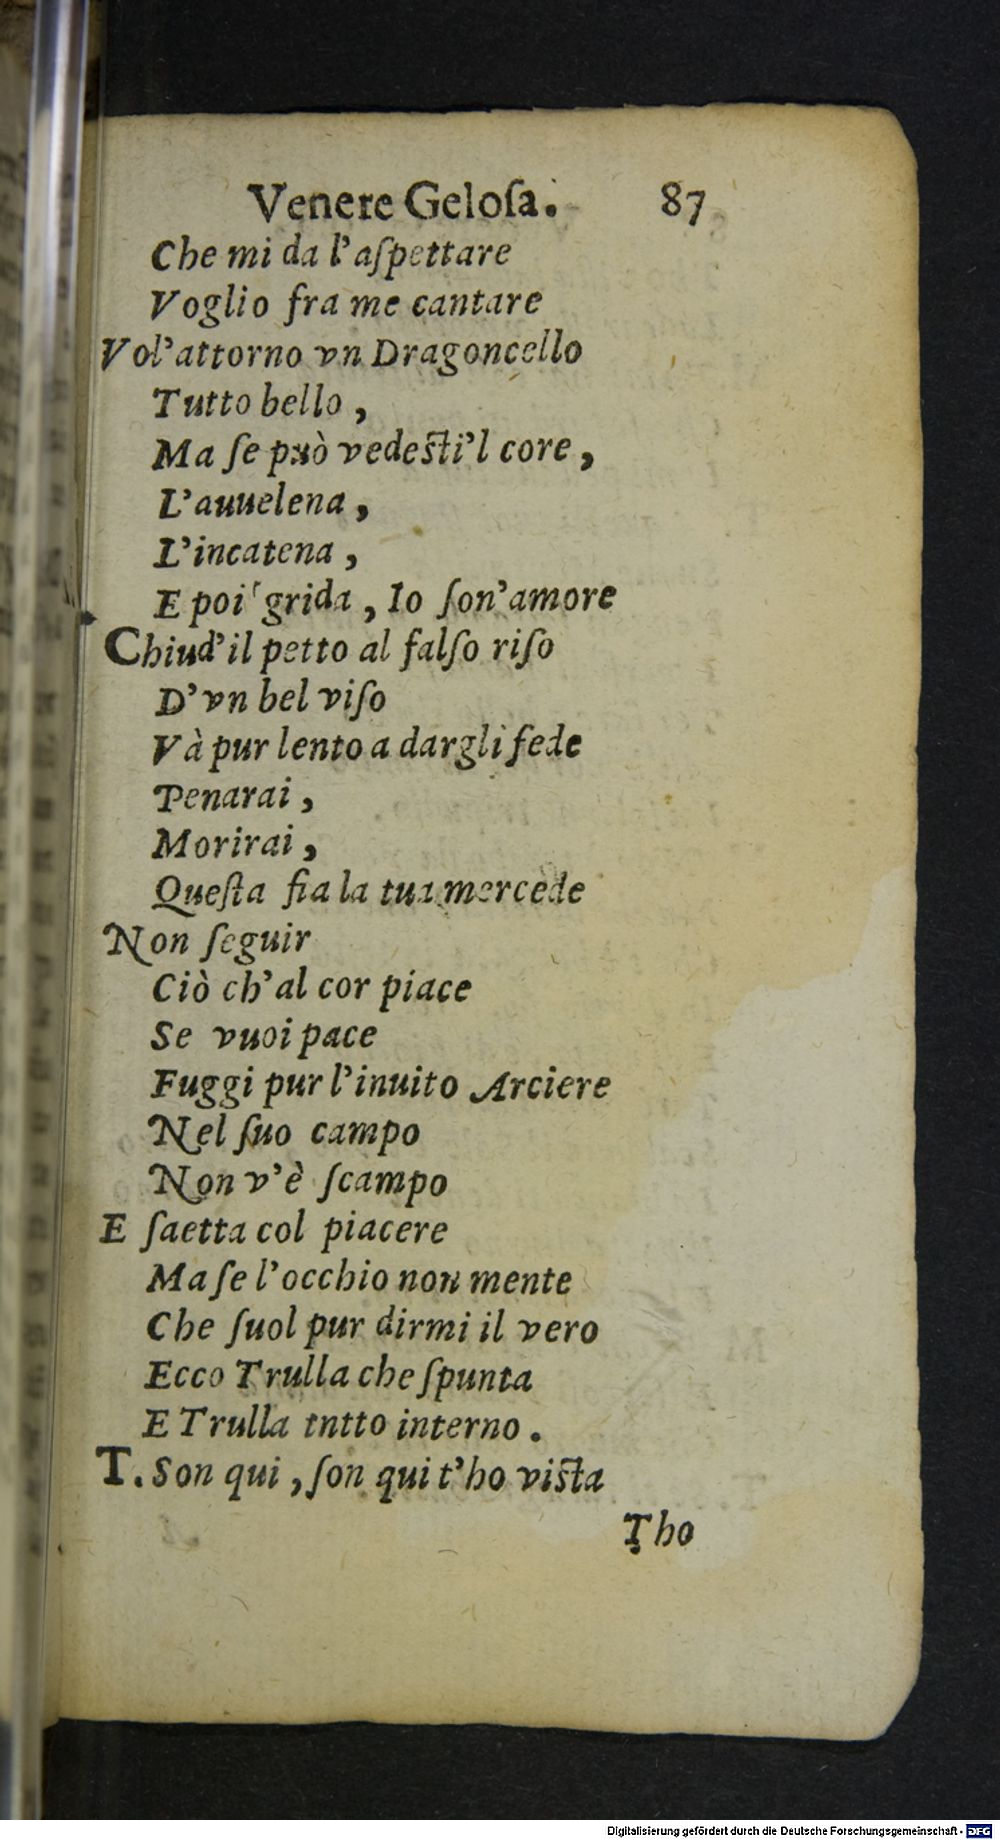 Venere Geloſa. 87
Che mi da l'aſpettare
Voglio fra me cantare
Vol'attorno vn Dragoncello
Tutto bello ,
Ma ſe può vedeſti'l core ,
L'auuelena ,
L'incatena ,
E poi grida , Io ſon'amore
Chiud'il petto al falſo riſo
D'vn bel viſo
Và pur lento a dargli fede
Penarai ,
Morirai ,
Queſta fia la tua mercede
Non ſeguir
Ciò ch'al cor piace
Se vuoi pace
Fuggi pur l'inuito Arciere
Nel ſuo campo
Non v'è ſcampo
E ſaetta col piacere
Ma ſe l'occhio non mente
Che ſuol pur dirmi il vero
Ecco Trulla che ſpunta
E Trulla tntto interno .
T. Son qui , ſon qui t'ho viſta
Tho
Digitalisierung gefördert durch die Deutsche Forschungsgemeinschaft - DFG